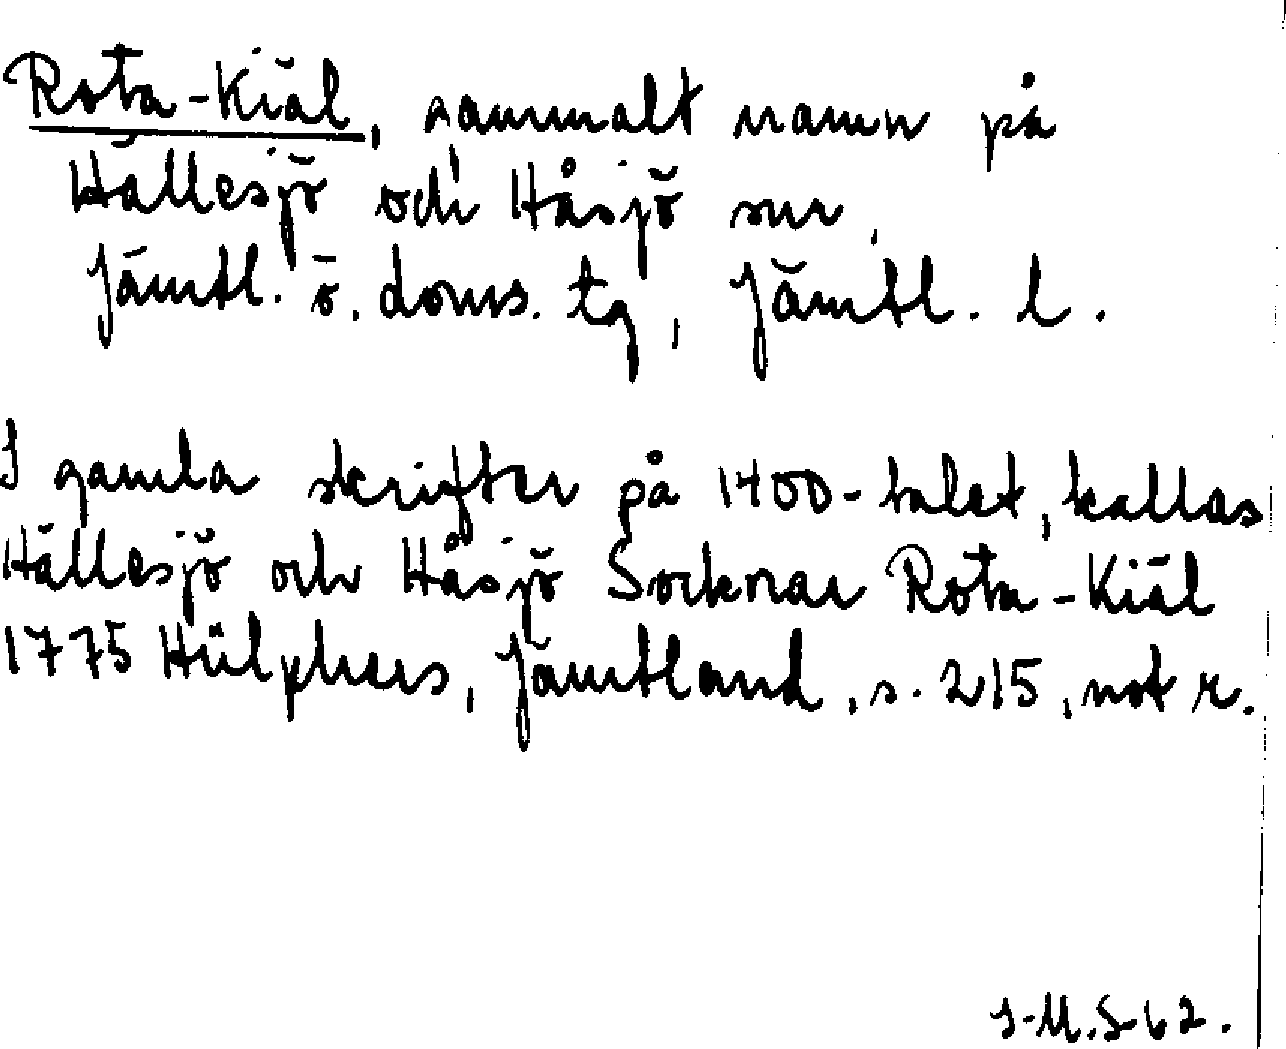 Rota-Kiäl, gammalt namn på
Hällesjö och Håsjö snr,
Jämtl. ö. doms. tg, Jämtl. l.
I gamla skrifter på 1400-talet, kallas
Hällesjö och Håsjö Socknar Rota-Kiäl
1775 Hülphers, Jämtland, s. 215, not r.
I-M.S-62.